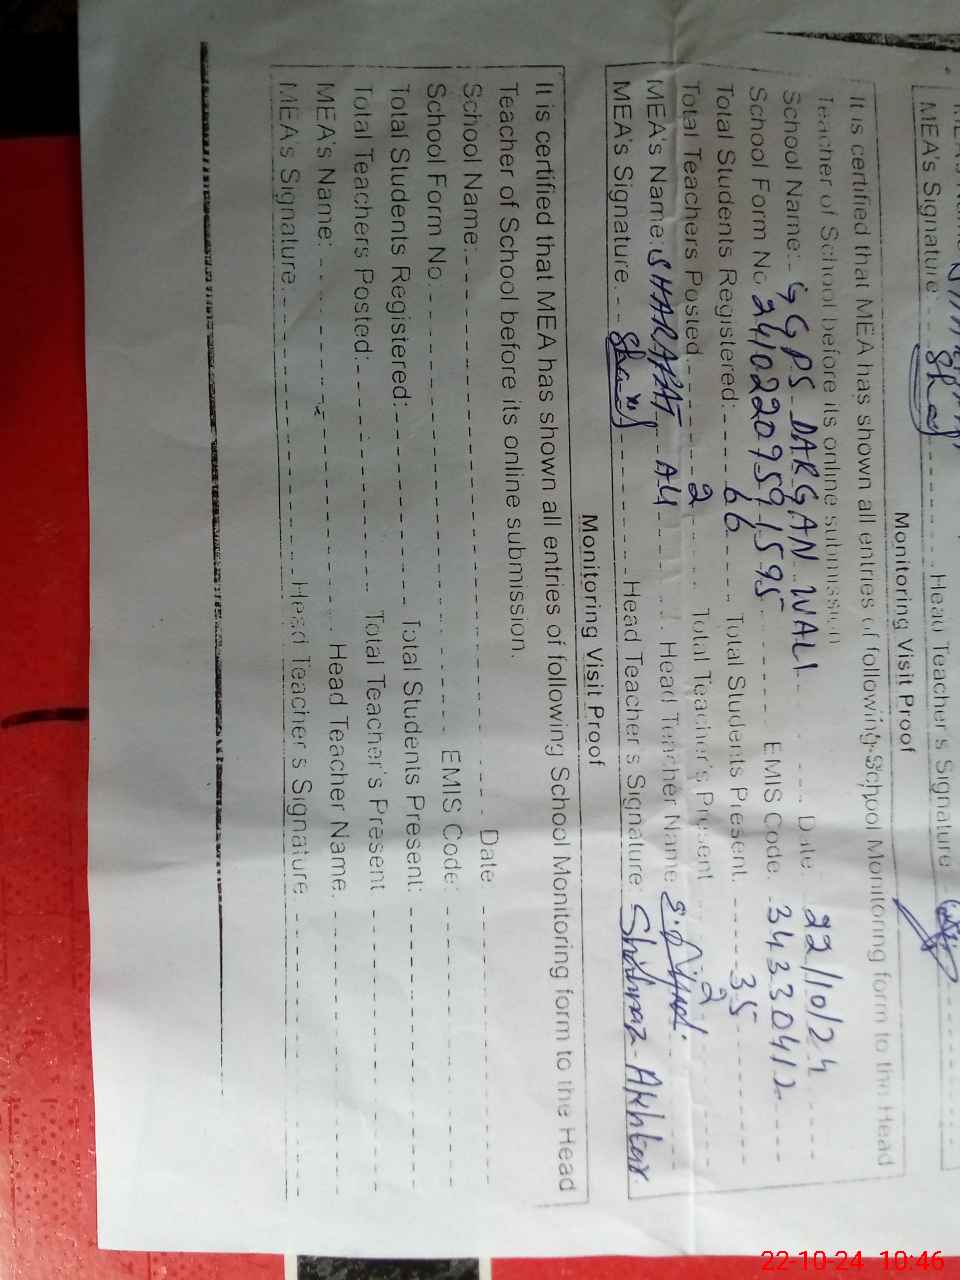 MEA's Signature: Shar Head Teacher's Signature
Monitoring Visit Proof
It is certified that MEA has shown all entries of following School Monitoring form to the Head
Teacher of School before its online submission
School Name: GGPS DARGAN WALI Date: 22/10/24
School Form No 24102209591595 EMIS Code: 34330412
Total Students Registered: 66 Total Students Present: 35
Total Teachers Posted: 2 Total Teacher's Present 2
MEA's Name: SHARAFAT Ali Head Teacher Name
MEA's Signature. Head Teacher's Signature: Shahnaz Akhtar
Monitoring Visit Proof
It is certified that MEA has shown all entries of following School Monitoring form to the Head
Teacher of School before its online submission.
School Name: Date:
School Form No. EMIS Code:
Total Students Registered: Total Students Present:
Total Teachers Posted: Total Teacher's Present
MEA's Name: Head Teacher Name:
MEA's Signature. Head Teacher's Signature:
22-10-24 10:46